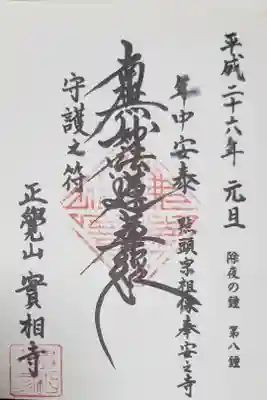 平成二十六年 元旦
除夜の鐘 第八鐘
年中安泰 點頭宗祖像奉安之寺
南無妙法蓮華経
守護之符
正覺山 實相寺